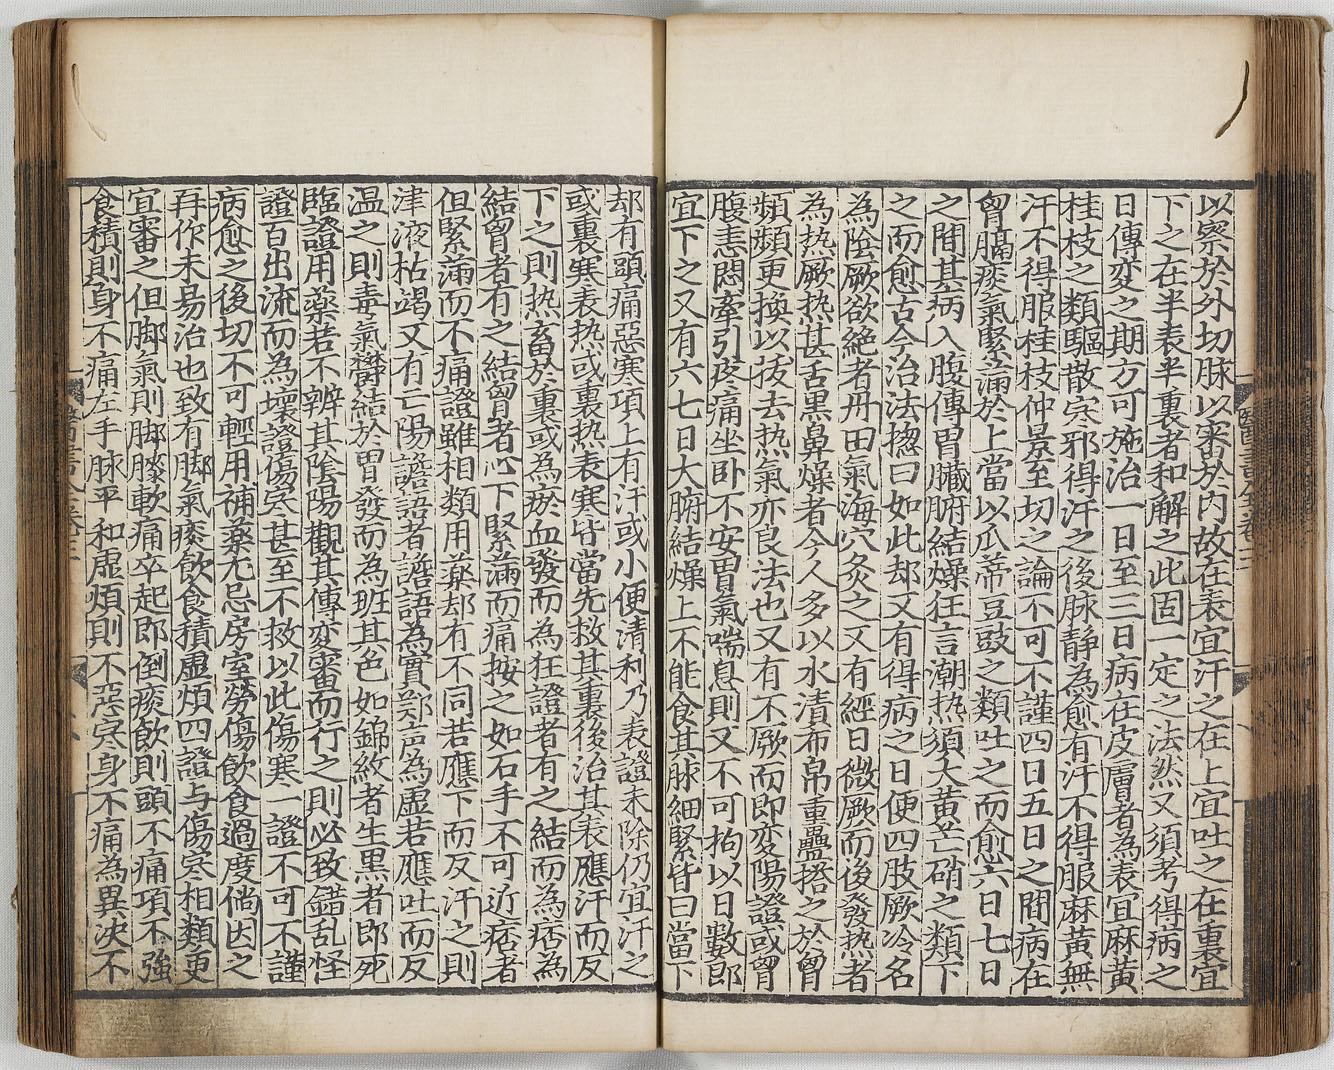 以察於外切脉以審於内故在表宜汗之在上宜吐之在裏宜
下之在半表半裏者和解之此固一定之法然又須考得病之
日傳变之期方可施治一日至三日病在皮膚者為表宜麻黄
桂枝之類驅散寒邪得汗之後脉静為愈有汗不得服麻黄無
汗不得服桂枝仲景至切之論不可不謹四日五日之間病在
胷膈痰氣緊滿於上當以瓜蒂豆豉之類吐之而愈六日七日
之間其病入腹傳胃臟腑結燥狂言潮热須大黄芒硝之類下
之而愈古今治法揔曰如此却又有得病之日便四肢厥冷名
為陰厥欲絶者丹田氣海穴灸之又有經日微厥而後發热者
為热厥热甚舌黒鼻燥者今人多以水漬布帛重疊搭之於胷
頻頻更換以拔去热氣亦良法也又有不厥而即变陽證或胷
腹恚悶牽引疼痛坐卧不安胃氣喘息則又不可拘以日數即
宜下之又有六七日大腑結燥上不能食其脉細緊皆曰當下
却有頭痛惡寒項上有汗或小便清利乃表證未除仍宜汗之
或裏寒表热或裏热表寒皆當先救其裏後治其表應汗而反
下之則热畜於裏或為瘀血發而為狂證者有之結而為痞為
結胷者有之結胷者心下緊滿而痛按之如石手不可近痞者
但緊滿而不痛證雖相類用藥却有不同若應下而反汗之則
津液枯竭又有亡陽譫語者譫語為實郑声為虚若應吐而反
温之則毒氣鬱結於胃發而為班其色如錦紋者生黒者即死
臨證用藥若不辨其陰陽觀其傳变審而行之則必致錯乱怪
證百出流而為壞證傷寒甚至不救以此傷寒一證不可不謹
病愈之後切不可輕用補藥尤忌房室勞傷飲食過度倘因之
再作未易治也致有脚氣痰飲食積虚煩四證与傷寒相類更
宜審之但脚氣則脚膝軟痛卒起即倒痰飲則頭不痛項不強
食積則身不痛左手脉平和虚煩則不惡寒身不痛為異决不